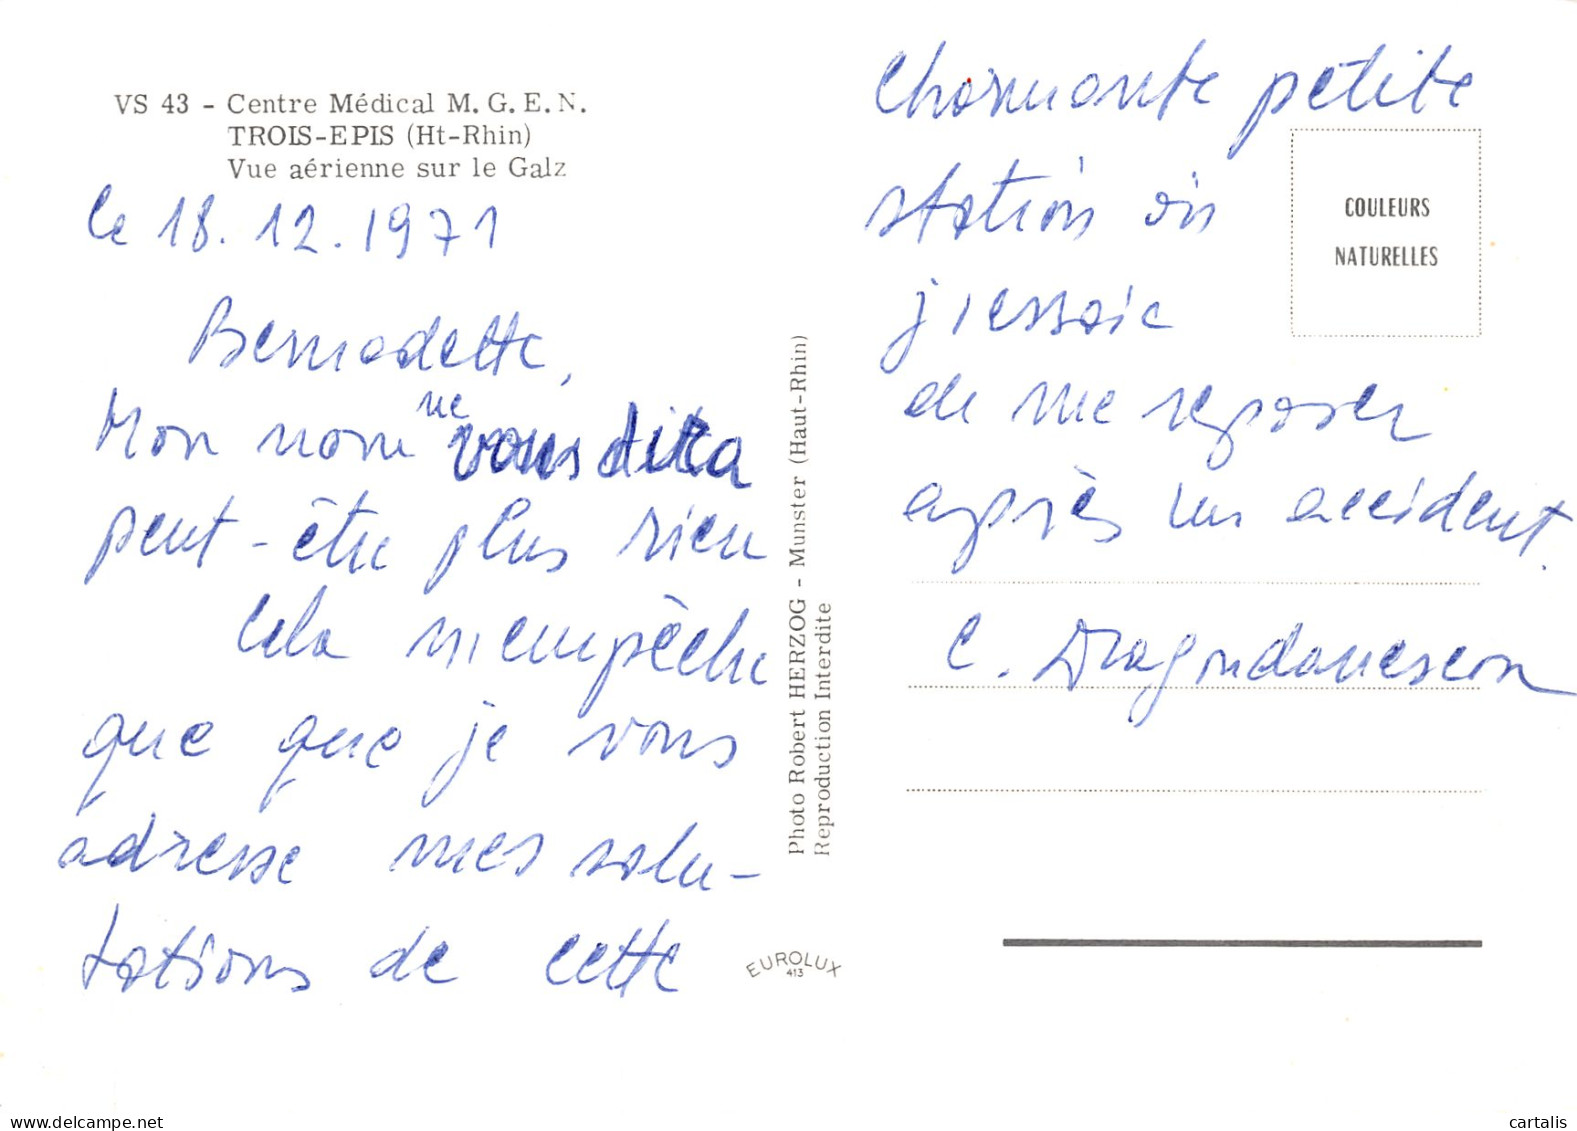 VS 43 - Centre Médical M. G. E. N.
TROIS-EPIS (Ht-Rhin)
Vue aérienne sur le Galz
le 18. 12. 1971
Bernadette,
Mon nom ne vous dira
peut-être plus rien
Cela n'empêche
que que je vous
adresse mes salu-
tations de cette
Photo Robert HERZOG - Munster (Haut-Rhin)
Reproduction Interdite
EUROLUX
413
Charmante petite
station où
j'essaie
de me reposer
après un accident.
C.
COULEURS
NATURELLES
cartalis